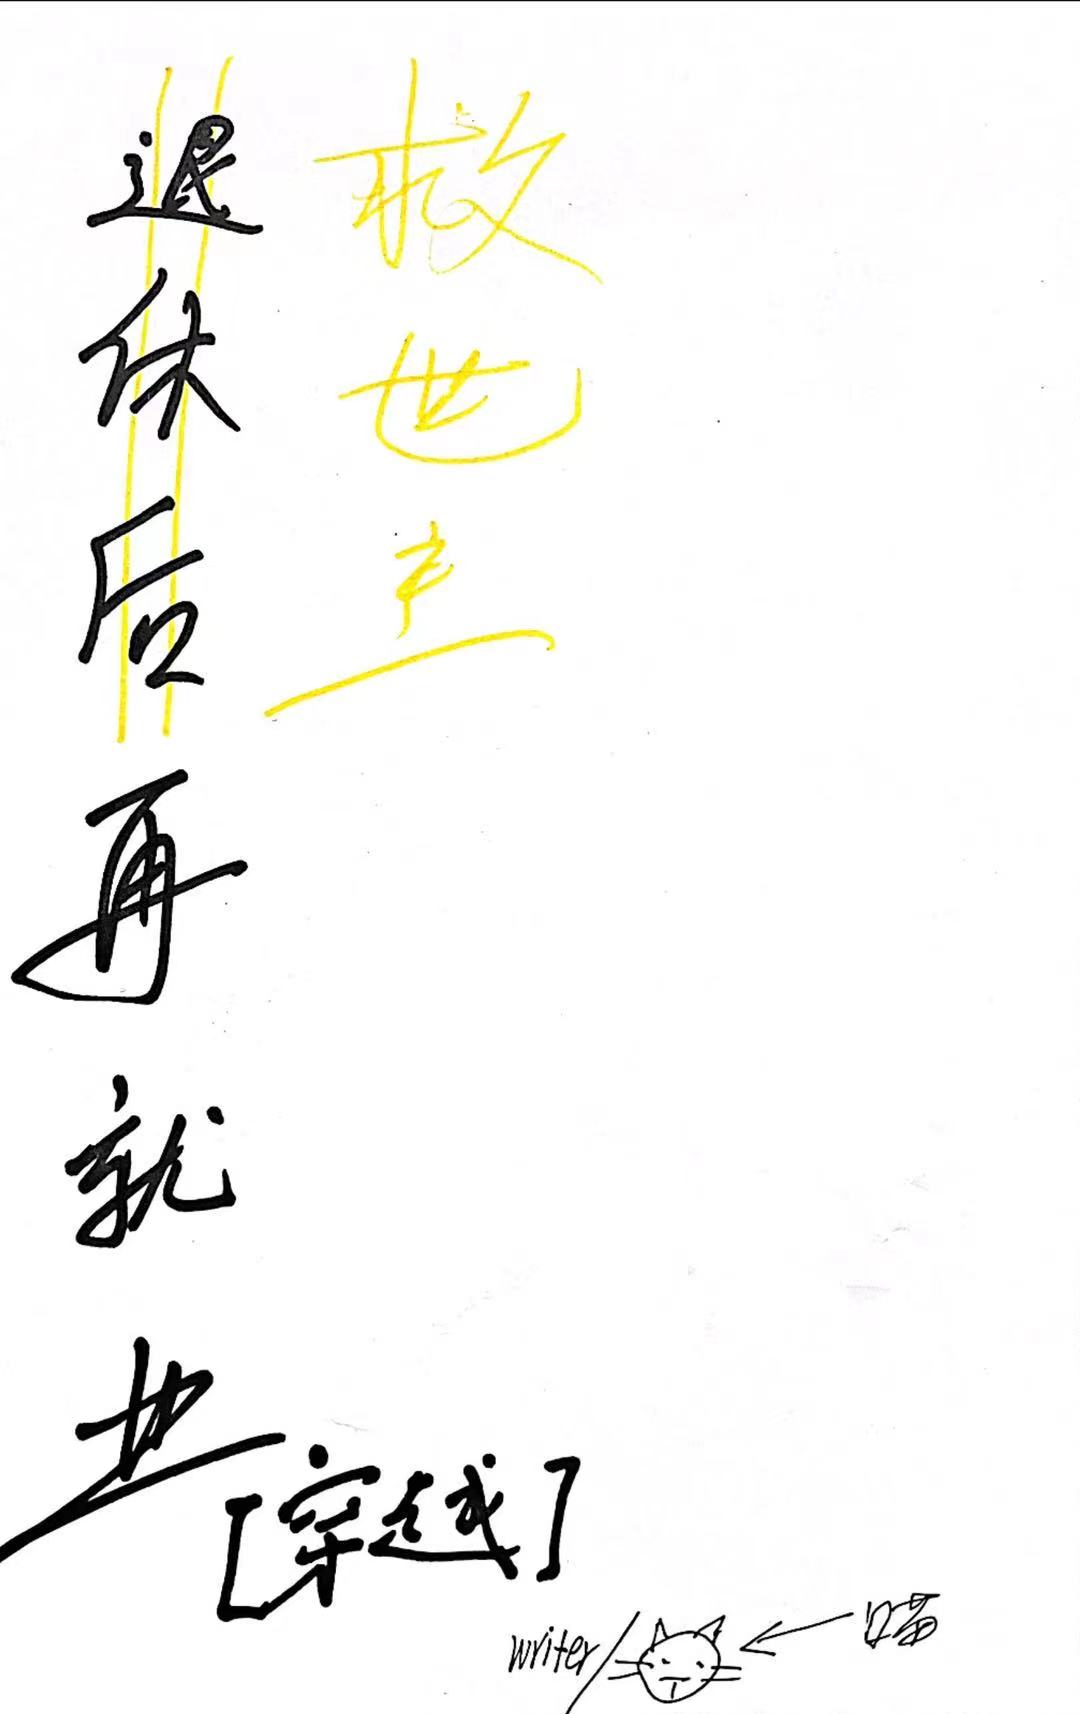 救世主
退休后再就业
[穿越]
writer/
喵